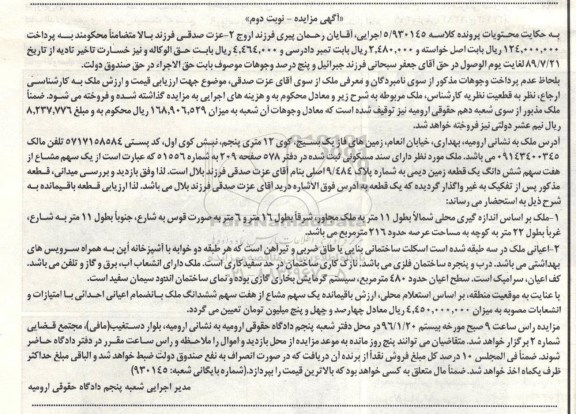 «آگهی مزایده – نوبت دوم»
به حکایت محتویات پرونده کلاسه ۵/۹۳۰۱۴۵ اجرایی، آقایان رحمان پیری فرزند اروج ۲-عزت صدقی فرزند بالا متضامناً محکومند به پرداخت
۱۲۴,۰۰۰,۰۰۰ ریال بابت اصل خواسته و ۲,۴۸۰,۰۰۰ ریال بابت تمبر دادرسی و ۴,۴۶۴,۰۰۰ ریال بابت حق الوکاله و نیز خسارت تاخیر تادیه از تاریخ
۸۹/۷/۲۱ لغایت یوم الوصول در حق آقای جعفر سبحانی فرزند جبرائیل و پنج درصد وجوهات موصوف بابت حق الاجراء در حق صندوق دولت.
بلحاظ عدم پرداخت وجوهات مذکور از سوی نامبردگان و معرفی ملک از سوی آقای عزت صدقی، موضوع جهت ارزیابی قیمت و ارزش ملک به کارشناسی
ارجاع، نظر به قطعیت نظریه کارشناس، ملک مربوطه به شرح زیر و معادل محکوم به و هزینه های اجرایی به مزایده گذاشته شده و فروخته می شود. ضمناً
ملک مذبور از سوی شعبه دهم حقوقی ارومیه نیز توقیف شده است که معادل وجوهات آن شعبه به میزان ۱۶۸,۹۰۶,۵۲۹ ریال محکوم به و مبلغ ۸,۲۳۷,۷۷۶
ریال نیم عشر دولتی نیز فروخته خواهد شد.
آدرس ملک به نشانی ارومیه، بهداری، خیابان انعام، زمین های فازیک بسیج، کوی ۱۲ متری پنجم، نبش کوی اول، کد پستی ۵۷۱۷۱۵۸۵۸۴ تلفن مالک
۰۹۱۴۳۴۰۰۳۴۵ می باشد. ملک مورد نظر دارای سند مسکونی ثبت شده در دفتر ۵۷۸ صفحه ۲۰۹ به شماره ۵۱۵۵۶ که عبارت است از یک سهم مشاع از
هفت سهم شش دانگ یک قطعه زمین دیمی به شماره پلاک ۹/۴۸۴ اصلی بنام آقای عزت صدقی فرزند بلال است. لذا وفق بازدید و بررسی میدانی، قطعه
مذکور پس از تفکیک به غیر واگذار گردیده که یک قطعه به آدرس فوق الاشاره درید آقای عزت صدقی فرزند بلال می باشد. لذا ارزیابی قطعه باقیمانده به
شرح ذیل به استحضار می رساند:
۱-ملک بر اساس اندازه گیری محلی شمالاً بطول ۱۱ متر به ملک مجاور، شرقاً بطول ۱۶ متر و ۶ متر به صورت قوس به شارع، جنوباً بطول ۱۱ متر به شارع،
غرباً بطول ۲۲ متر به کوچه به مساحت عرصه حدود ۲۱۶ مترمربع می باشد.
۲-اعیانی ملک در سه طبقه شده است اسکلت ساختمانی بنایی با طاق ضربی و تیرآهن است که هر طبقه دو خوابه با آشپزخانه اپن به همراه سرویس های
بهداشتی می باشد. درب و پنجره ساختمان فلزی می باشد. نازک کاری ساختمان در حد سفید کاری است. ملک دارای انشعاب آب، برق و گاز و تلفن می باشد.
کف اعیان، سرامیک است. سطح اعیان حدود ۴۸۰ مترمربع، سیستم گرمایش بخاری گازی بوده و نمای ساختمان اندود سیمان سفید است.
با عنایت به موقعیت منطقه، بر اساس استعلام محلی، ارزش باقیمانده یک سهم مشاع از هفت سهم ششدانگ ملک بانضمام اعیانی احداثی با امتیازات و
انشعابات منصوبه به میزان ۴,۴۵۰,۰۰۰,۰۰۰ ریال معادل چهارصد و چهل و پنج میلیون تومان تعیین می گردد.
مزایده راس ساعت ۹ صبح مورخه بیستم ۹۶/۱/۲۰ در محل دفتر شعبه پنجم دادگاه حقوقی ارومیه به نشانی ارومیه، بلوار دستغیب(مافی)، مجتمع قضایی
شماره ۲ برگزار خواهد شد. متقاضیان می توانند پنج روز مانده به موعد مزایده از محل بازدید و اموال را ملاحظه و راس ساعت مقرر در دفتر دادگاه حاضر
شوند. ضمناً فی المجلس ۱۰ درصد کل مبلغ فروش نقداً از برنده آن دریافت که در صورت انصراف به نفع صندوق دولت ضبط خواهد شد و الباقی مبلغ حداکثر
ظرف یکماه اخذ خواهد شد. ضمناً مال متعلق به کسی خواهد بود که بالاترین قیمت را بپردازد.(شماره بایگانی شعبه: ۹۳۰۱۴۵)
مدیر اجرایی شعبه پنجم دادگاه حقوقی ارومیه